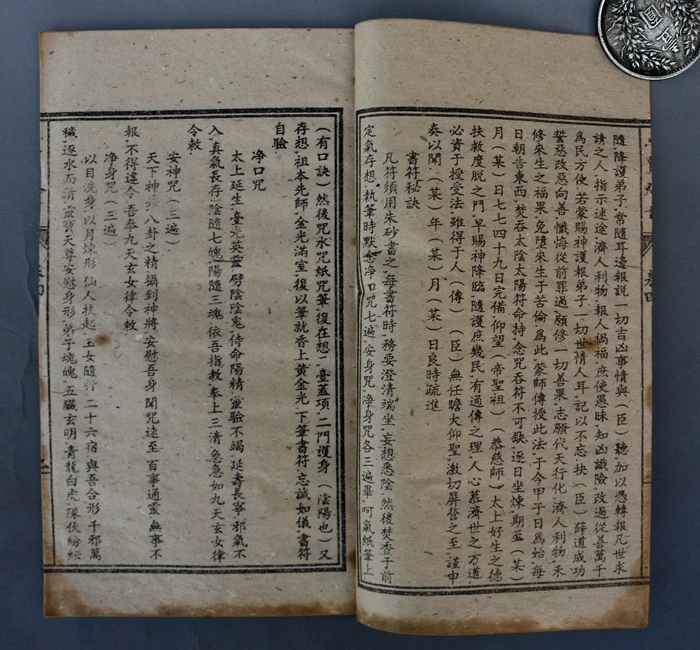 隨降護弟子、常隨耳邊報說一切吉凶事情與（臣）聽、加以憑轉報凡世求
請之人、指示迷途、濟人利物、報人禍福、庶使愚昧知凶識險、改過從善、萬千
為民方使、若蒙賜神護報弟子、一切世情人耳、記以不忘、扶（臣）薛道成功
誓惡改惡向善、懺悔從前罪過、願修一切善果、志願代天行化、濟人利物、禾
修來生之福果、免墮來生于苦倫、為此、蒙師傳授此法、于今甲子日為始、每
日朝告東西、焚吞太陰太陽符命持、念咒吞符不可缺、逐日坐煉、期至（某）
月（某）日七七四十九日完備、仰望（帝聖祖）（恭慈師）太上好生之德
扶救度脫之門、早賜神降臨、隨護庶幾民、有通傳之理、人心慕濟世之万道、
必資于授受法、雖得于人（傳）（臣）無任瞻大仰聖、激切屏營之至、謹申
奏以聞、（某）年（某）月（某）日良時疏進
書符秘訣
凡符須用朱砂書之、每書符時、務要澄清端坐、妄想悉除、然後焚香于前
定氣存想、執筆時默念净口咒七遍、安身咒、净身咒各三遍畢、呵氣紙筆上
（有口訣）然後咒水咒紙咒筆、復在想、 盖項、二門護身（陰陽也）又
存想、祖本先師、金光滿室、復以筆就香上黃金光、下筆書符、志誠如儀、書符
自驗
净口咒
太上延生、臺光英靈、劈陰陰鬼、侍命陽精、靈驗不竭、延壽長寧、邪氣不
入、真氣長存、陰隨七魄、陽隨三魂、依吾指教、奉上三清、急急如九天玄女律
令敕
安神咒（三遍）
天下神 八卦之精、攝到神將、安慰吾身、聞咒速至、百事通靈、無事不
報、不得違令、吾奉九天玄女律令敕
净身咒（三遍）
以日洗身、以月煉形、仙人扶起、玉女隨行、二十六宿、與吾合形、千邪萬
穢、逐水而清、靈寶天尊、安慰身形、弟子魂魄、五臟玄明、青龍白虎、隊伏紛紜